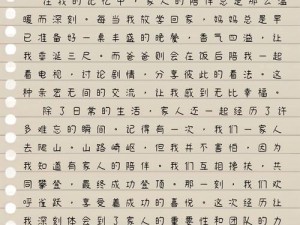 在我的记忆中，家人的陪伴总是那么温
暖而深刻。每当我放学回家，妈妈总是早
已准备好一桌丰盛的晚餐，香气四溢，让
我垂涎三尺。而爸爸则会在饭后陪我一起
看电视，讨论剧情，分享彼此的看法。这
种亲密无间的交流，让我感到无比幸福。
除了日常的生活，家人还一起经历了许
多难忘的瞬间。记得有一次，我们一家人
去爬山。山路崎岖，但我并不害怕，因为
我知道有家人的陪伴。我们互相搀扶，共
同攀登，最终成功登顶。那一刻，我们欢
呼雀跃，享受着成功的喜悦。这次经历让
我深刻体会到了家人的重要性和团队的力